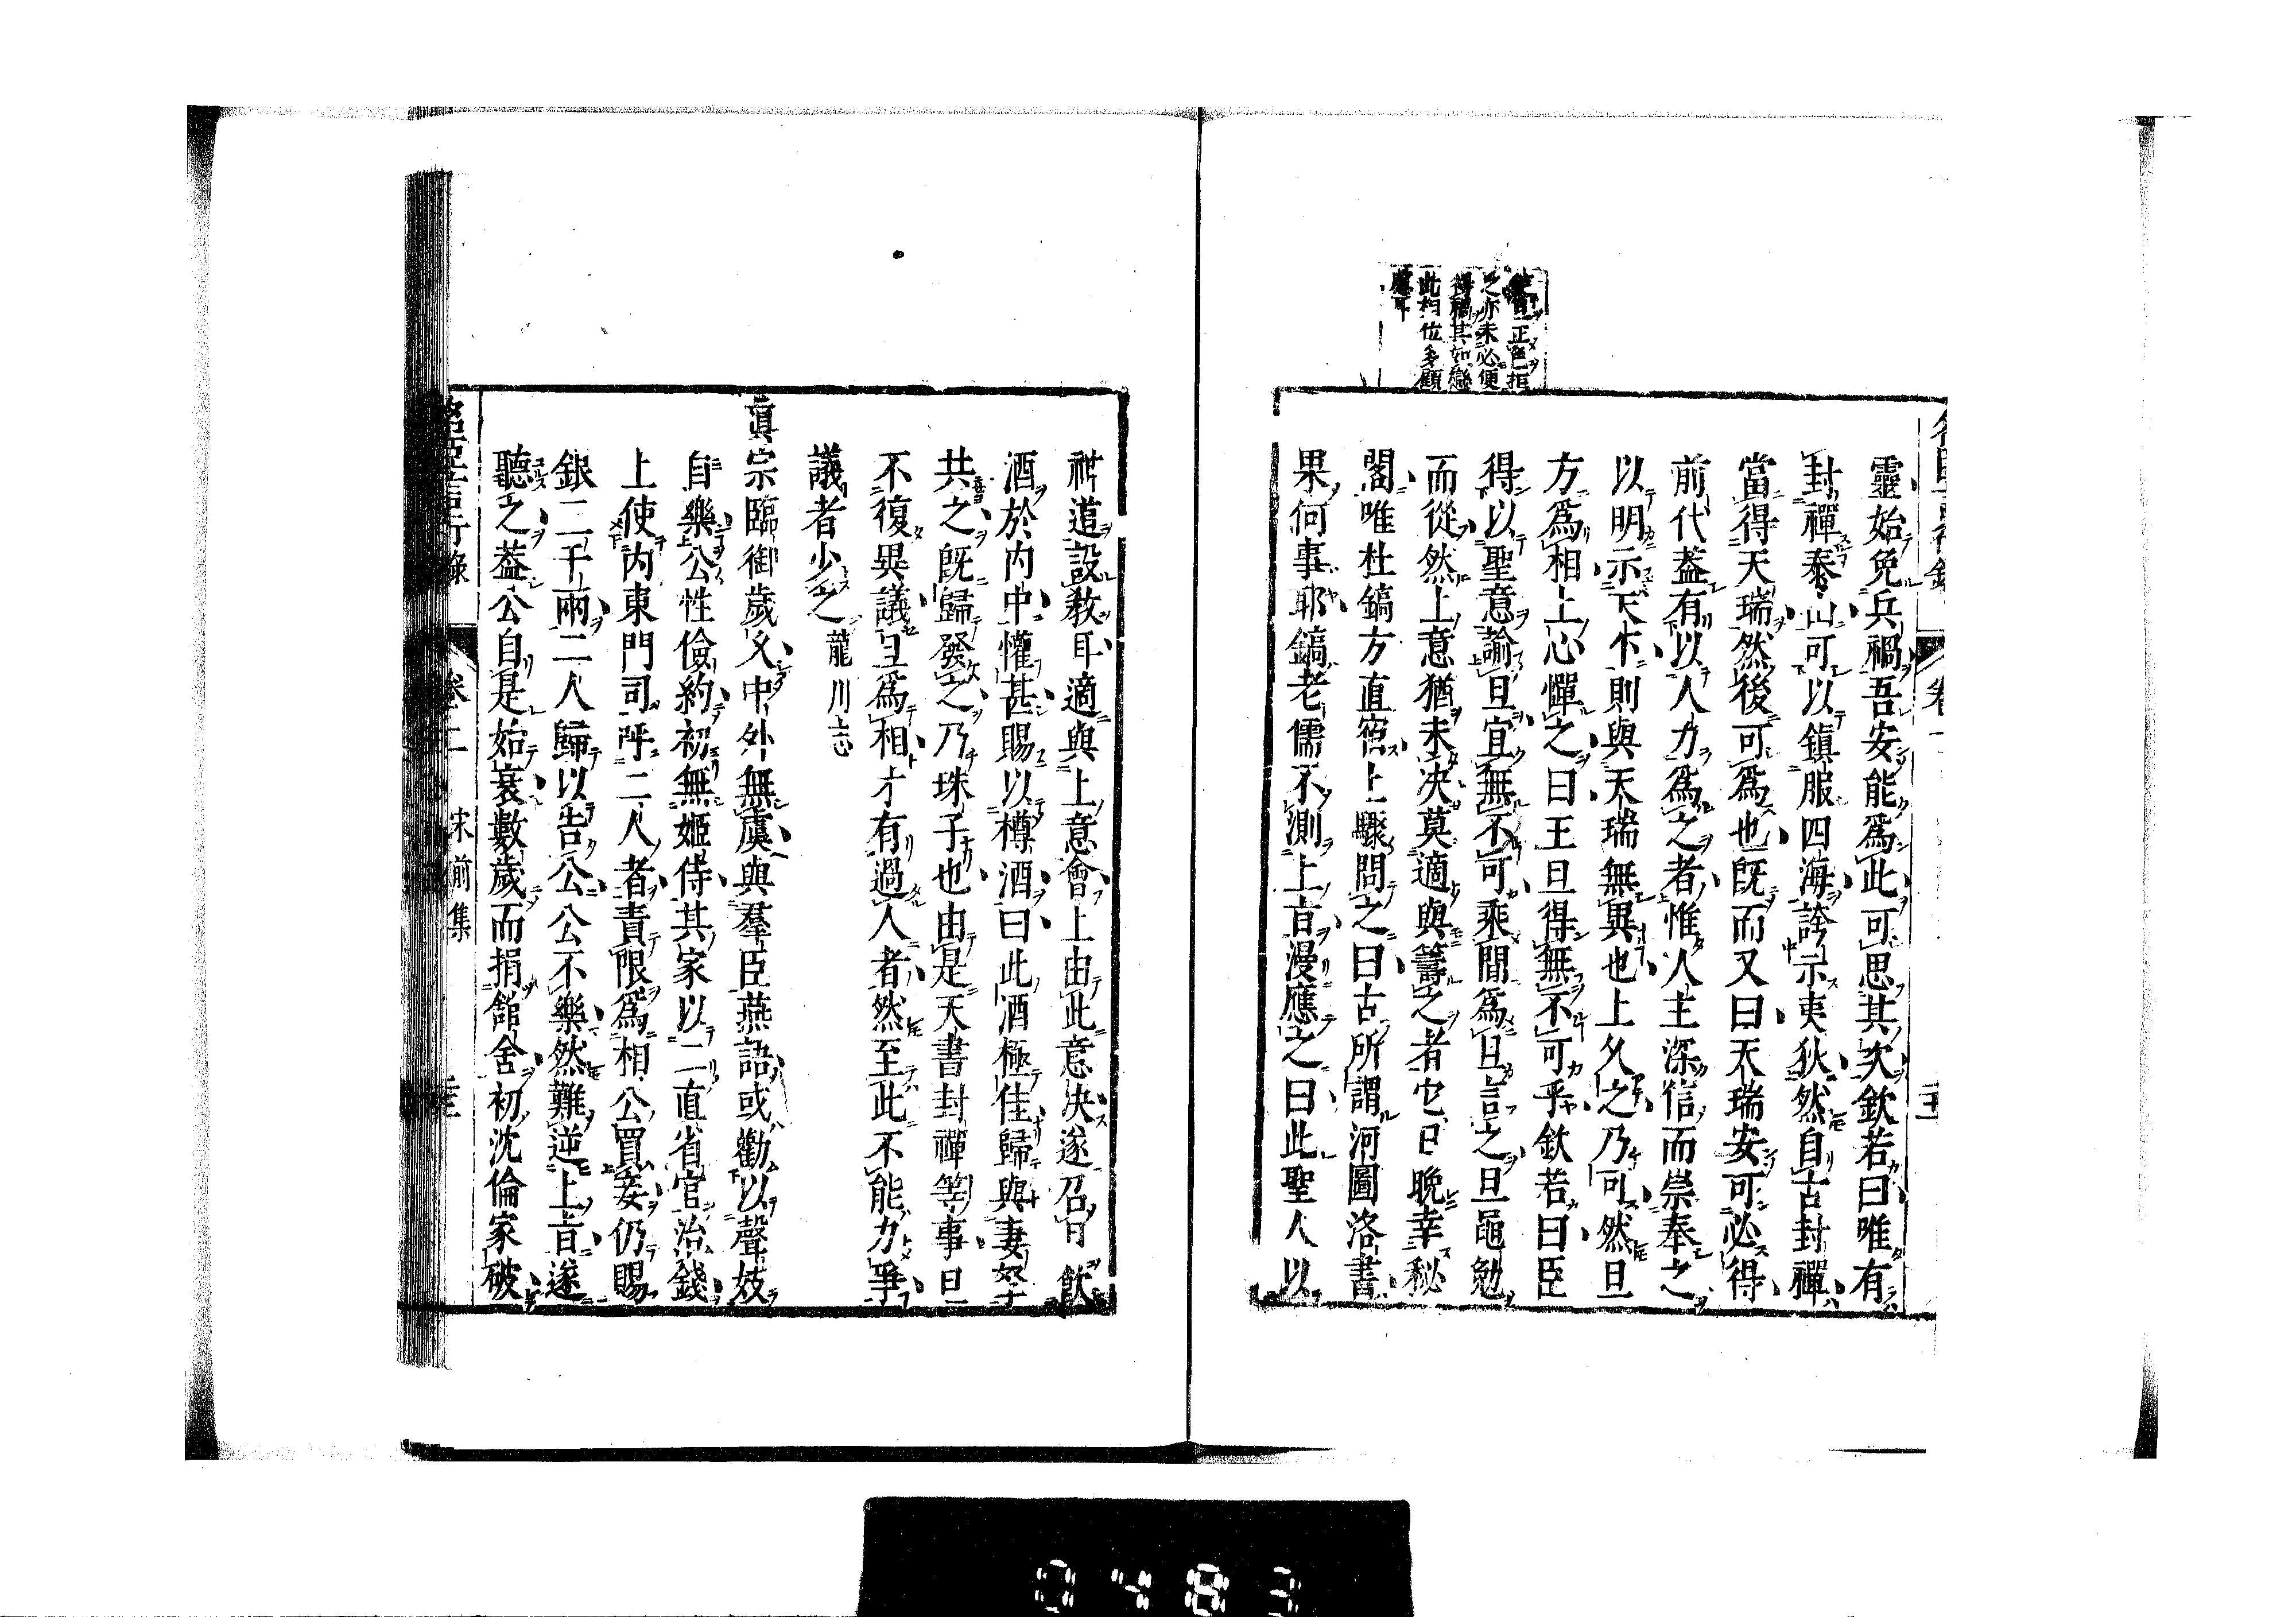 之亦未必便
得禍其如戀
此相位多顧
慮耳
靈始免兵禍吾安能爲此可思其次欽若曰唯有
封禪泰山可以鎮服四海誇示夷狄然自古封禪
當得天瑞然後可爲也既而又曰天瑞安可必得
前代蓋有以人力爲之者惟人主深信而崇奉之
以明示天下則與天瑞無異也上久之乃可然旦
方爲相上心憚之曰王旦得無不可乎欽若曰臣
得以聖意諭旦宜無不可乘間爲旦言之旦黽勉
而從然上意猶未决莫適與籌之者它日晚幸秘
閣唯杜鎬方直宿上驟問之曰古所謂河圖洛書
果何事耶鎬老儒不測上旨漫應之曰此聖人以
神道設敎耳適與上意會上由此意决遂召旦飲
酒於内中懽甚賜以樽酒曰此酒極佳歸與妻孥
共之既歸發之乃珠子也由是天書封禪等事旦
不復異議旦爲相才有過人者然至此不能力爭
議者少之 龍川志
眞宗臨御歲久中外無虞與羣臣燕語或勸以聲妓
自樂公性儉約初無姬侍其家以二直省官治錢
上使内東門司呼二人者責限爲相公買妾仍賜
銀二千兩二人歸以告公公不樂然難逆上旨遂
聽之蓋公自是始衰數歲而捐舘舍初沈倫家破
名臣言行錄 卷二 宋前集